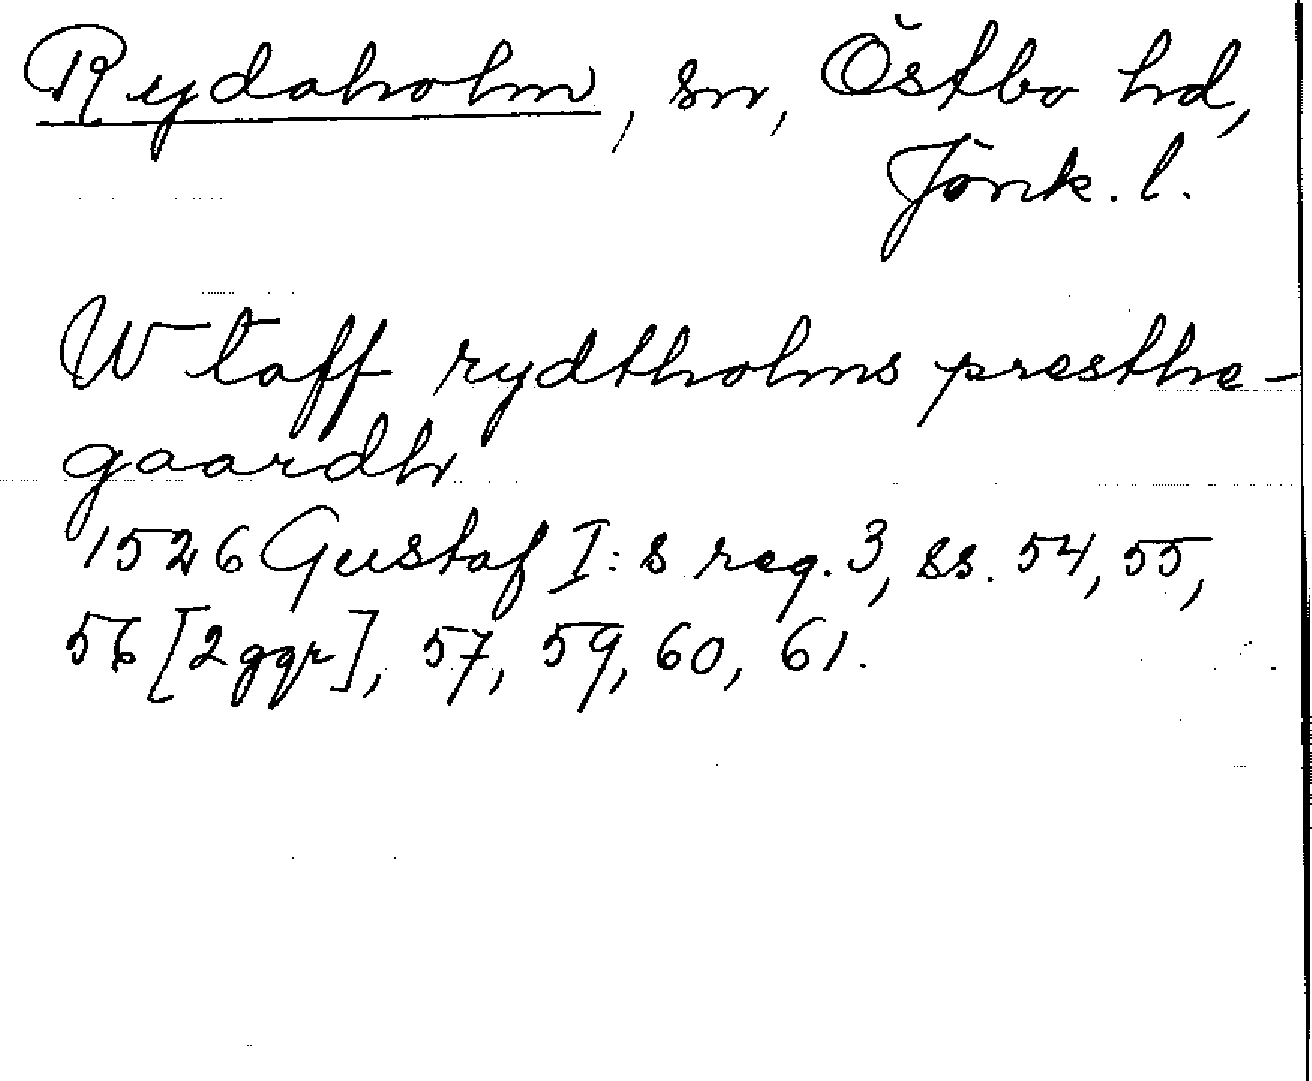 Rydaholm, sn, Östbo hd,
Jönk. l.
Wtaff rydtholms presthe-
gaardh
1526 Gustaf I:s reg. 3, ss. 54, 55,
56 [2 ggr], 57, 59, 60, 61.